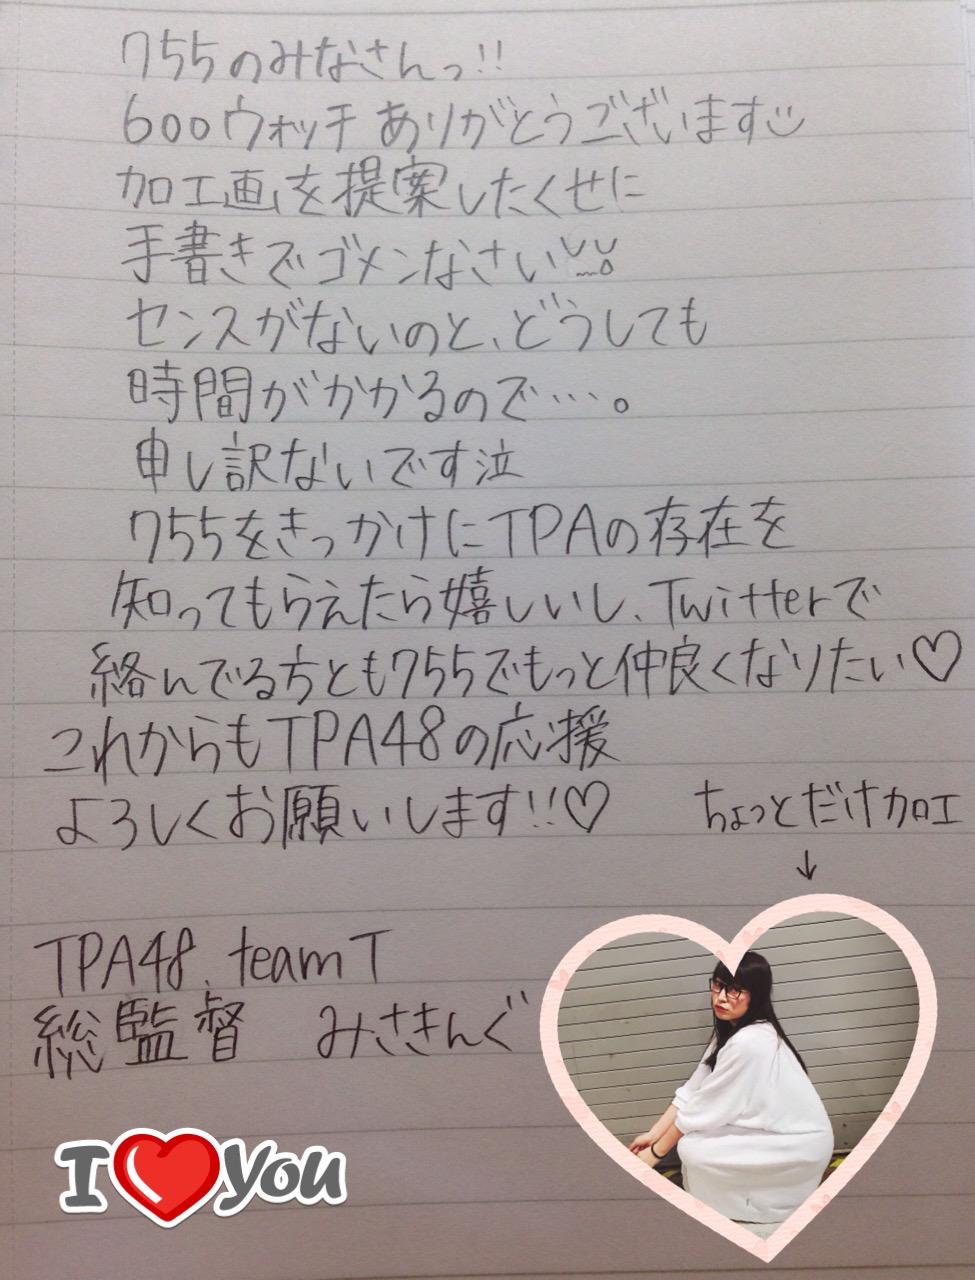 755のみなさんっ!!
600ウォッチありがとうございます
加工画を提案したくせに
手書きでゴメンなさい
センスがないのと、どうしても
時間がかかるので…。
申し訳ないです泣
755をきっかけにTPAの存在を
知ってもらえたら嬉しいし、Twitterで
絡んでる方とも755でもっと仲良くなりたい♡
これからもTPA48の応援
よろしくお願いします!!♡
ちょっとだけ加工
↓
TPA48. teamT
総監督 みさきんぐ
I❤you